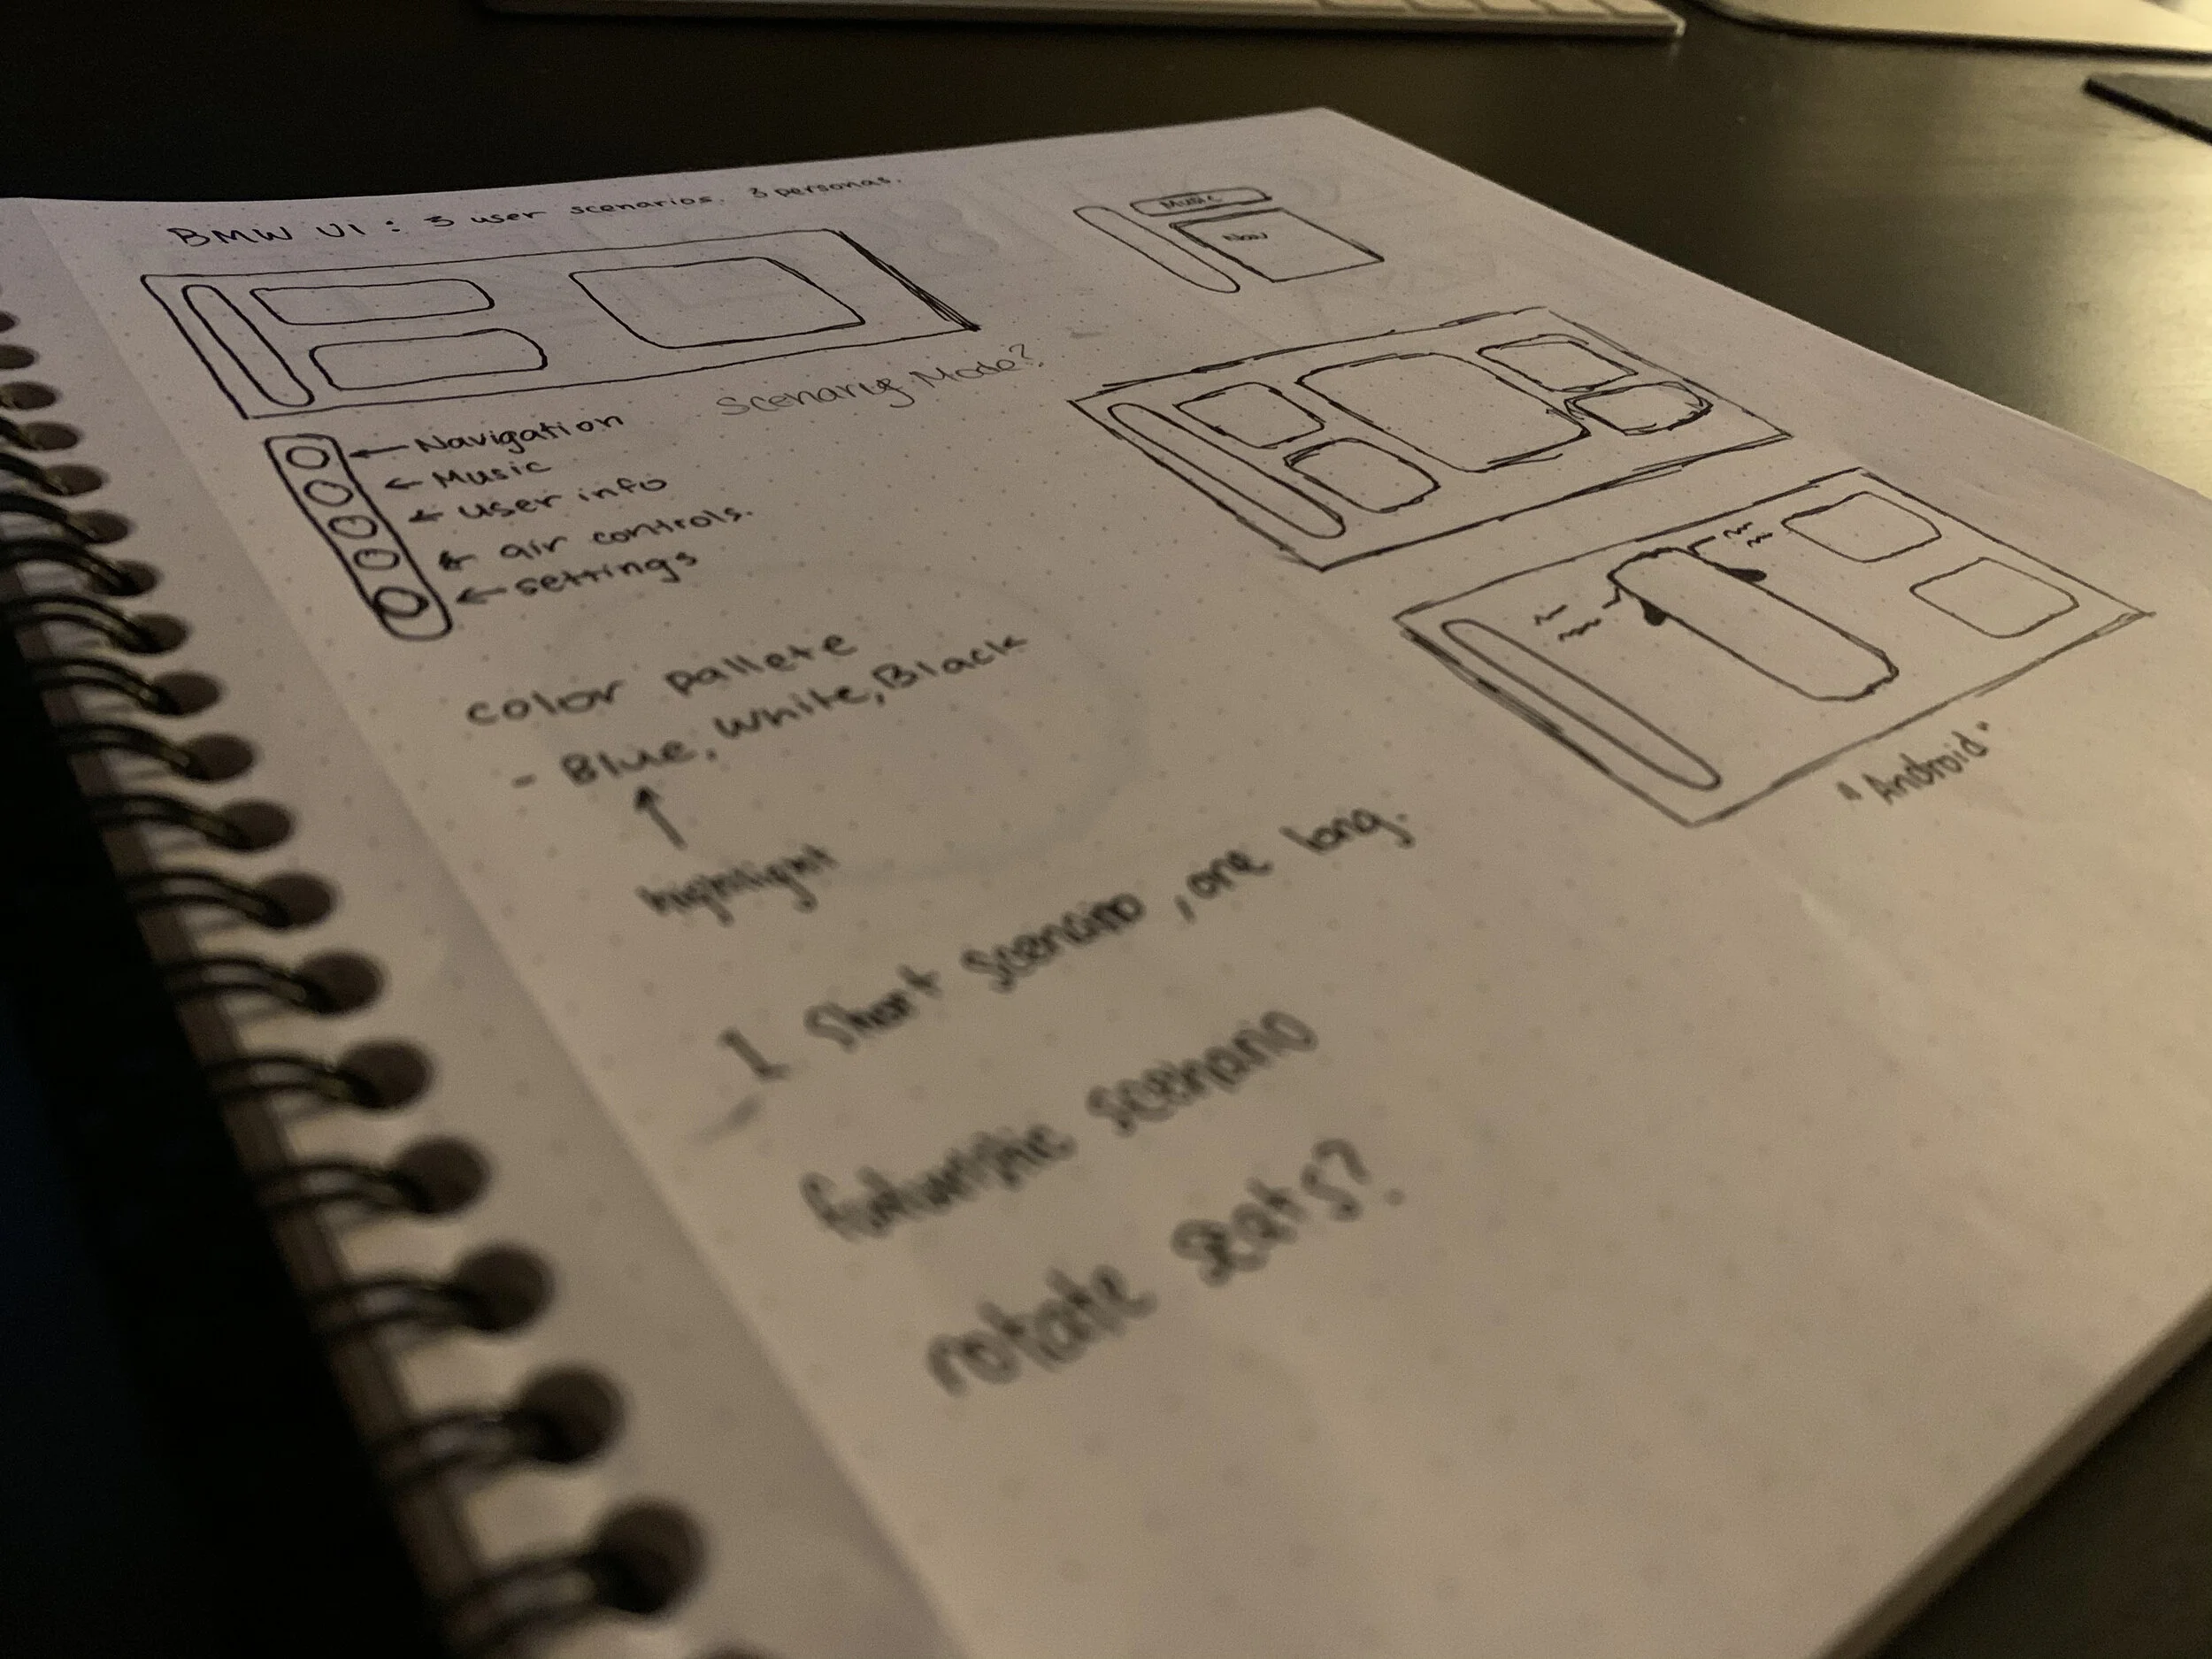 BMW UI : 3 user scenarios. 3 personas.
Music
Nav
Scenary Mode?
Navigation
Music
user info
air controls.
settings
color pallete
- Blue, White, Black
highlight
1 short scenario, one long.
futuristic scenario
rotate seats?
"Android"